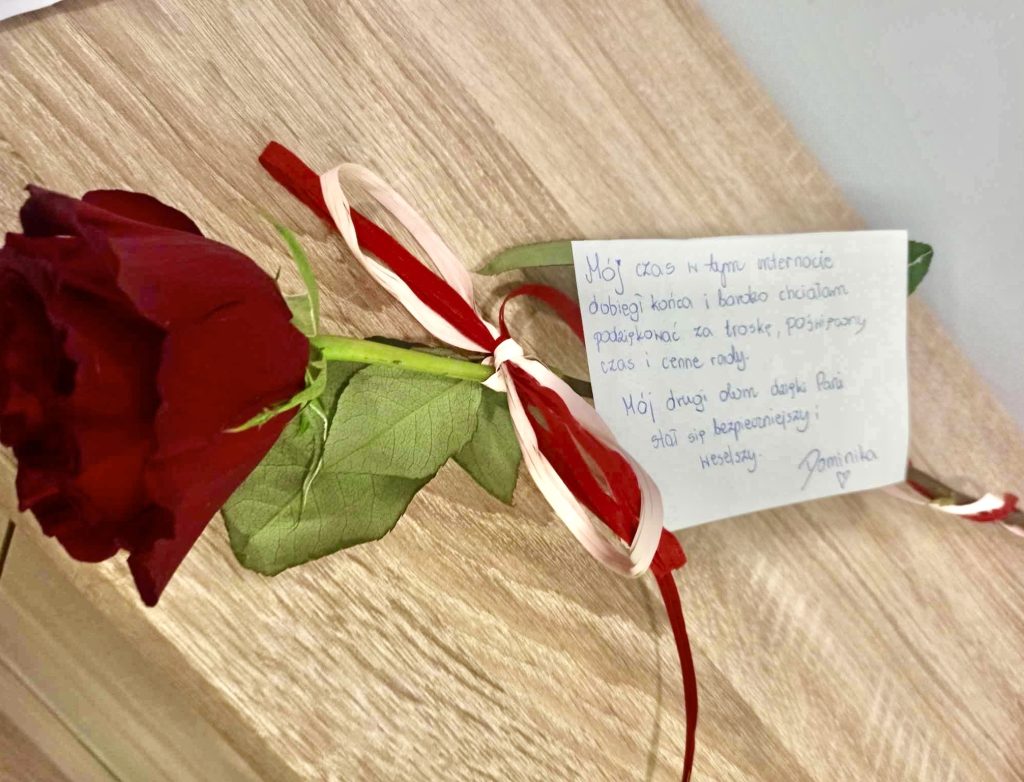 Mój czas w tym internacie
dobiegł końca i bardzo chciałam
podziękować za troskę, poświęcony
czas i cenne rady.
Mój drugi dom dzięki Pani
stał się bezpieczniejszy i
weselszy.
Dominika